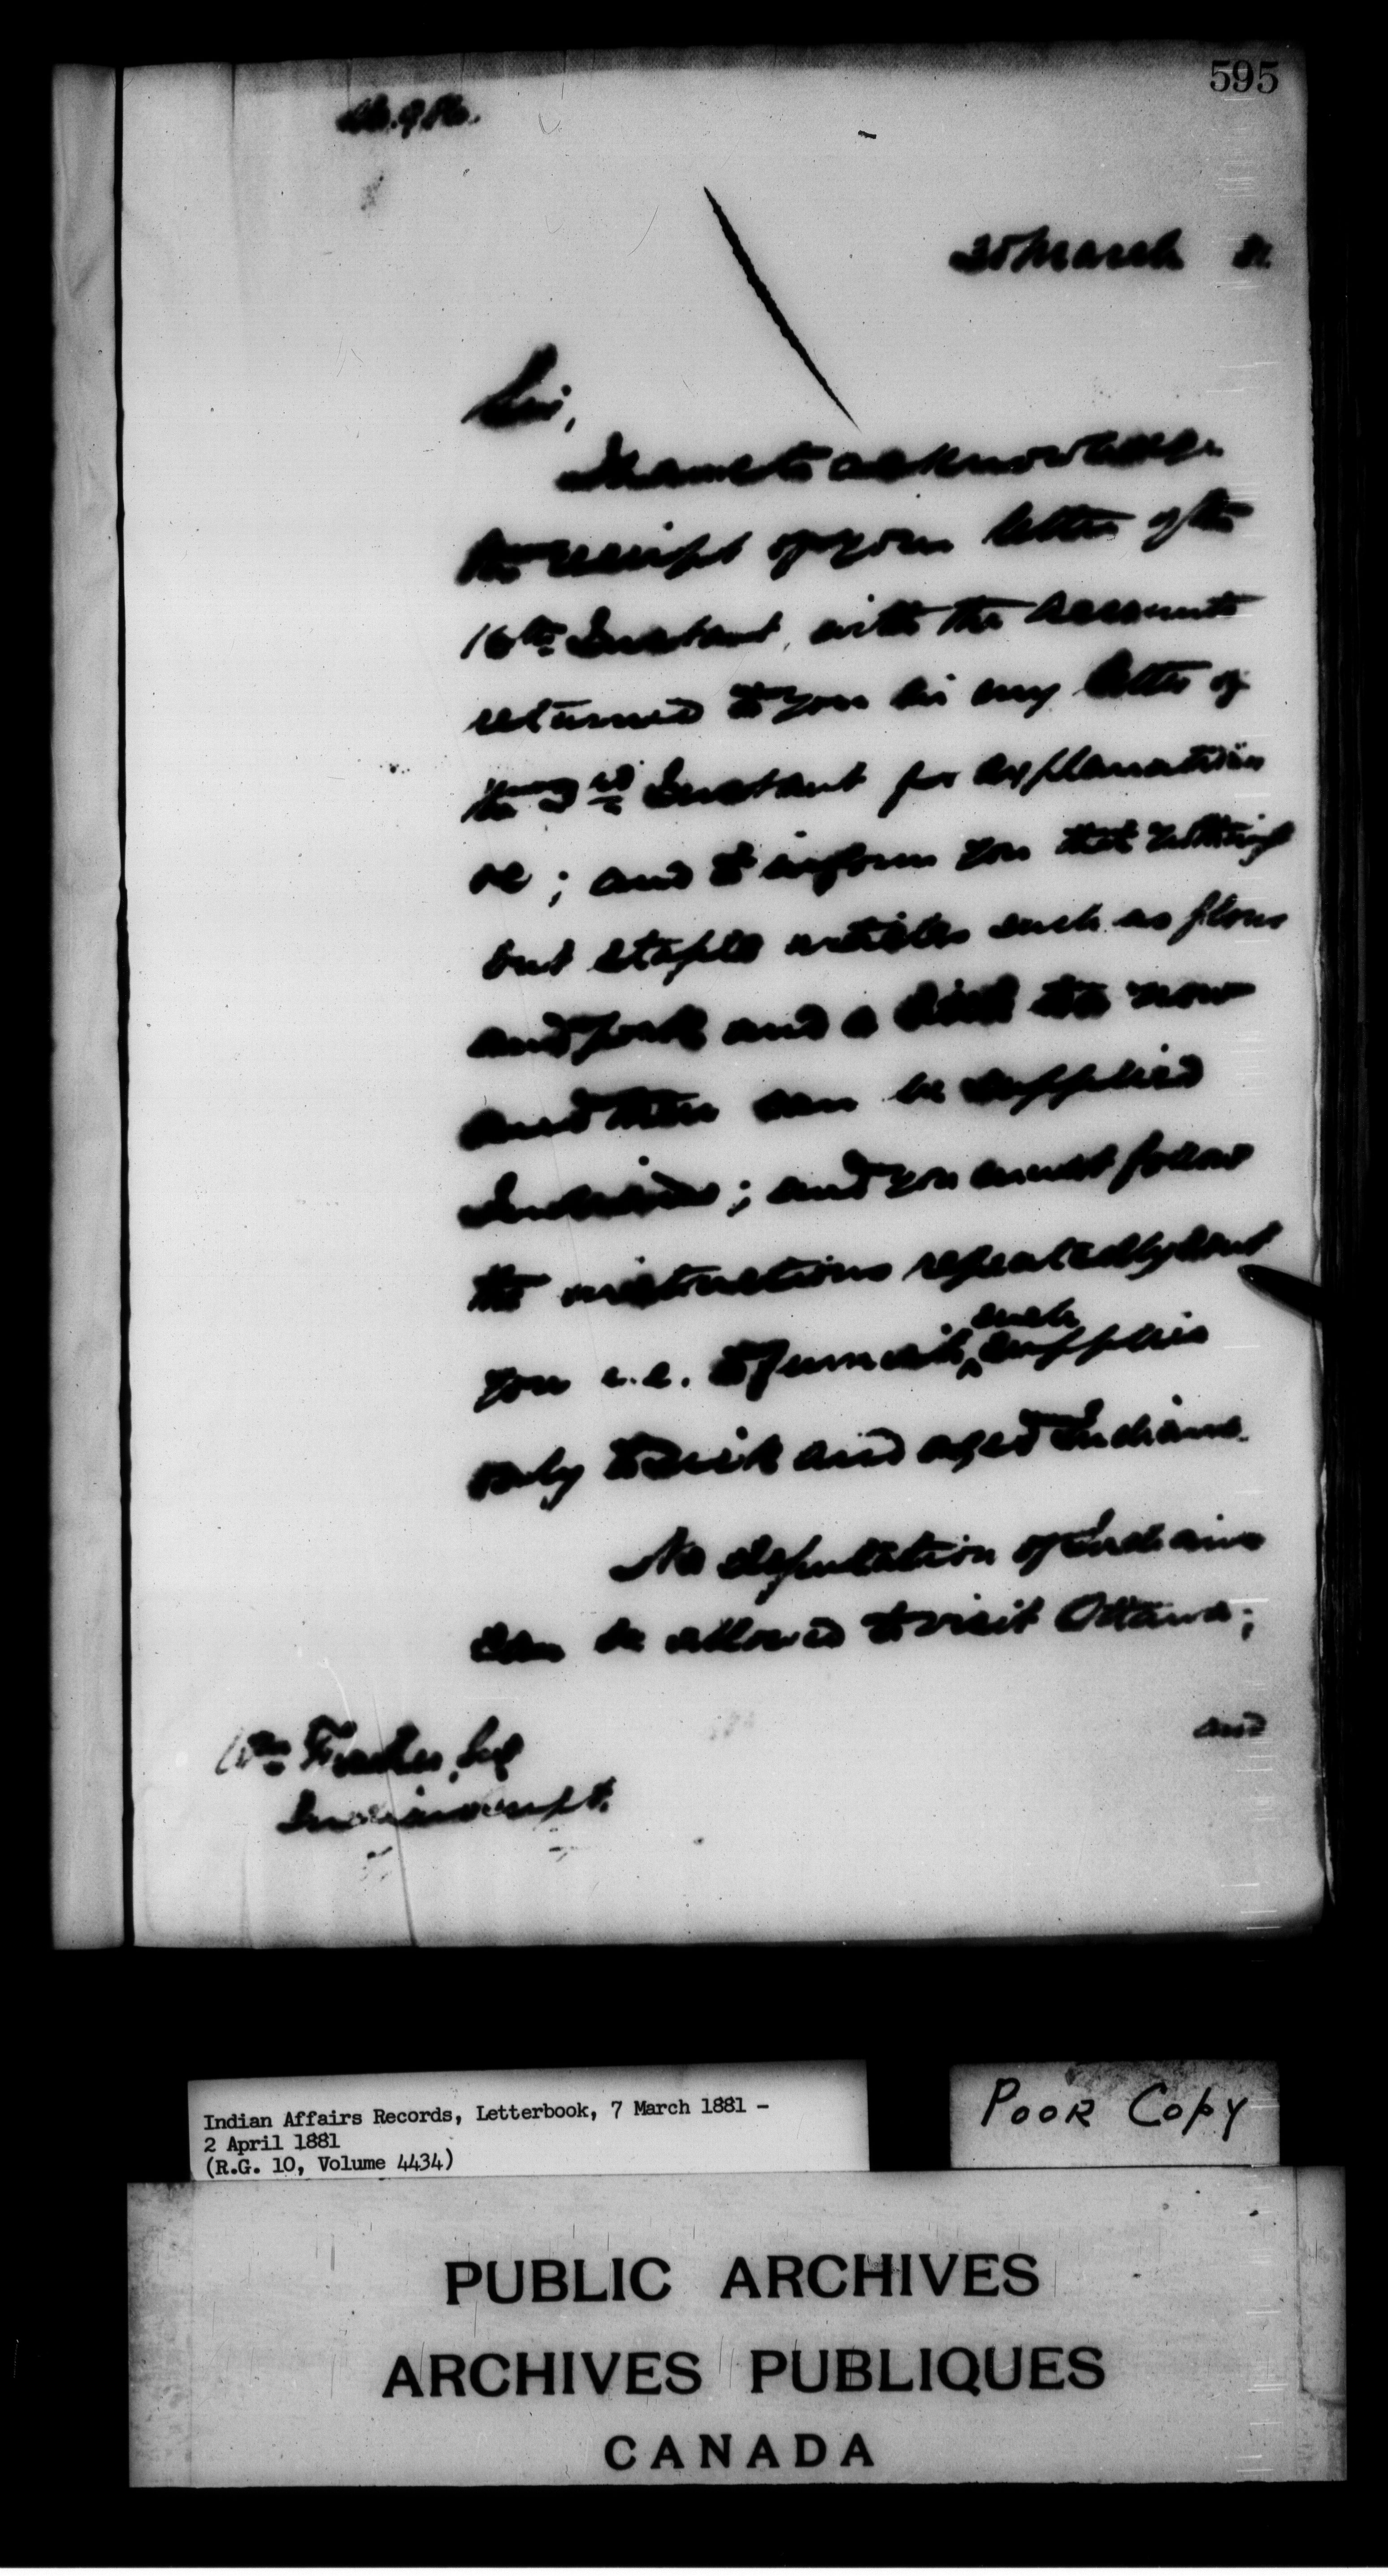 595
30 March 81
Sir,
I have to acknowledge
the receipt of your letter of the
16th Instant, with the accounts
returned to you in my letter of
the 3rd Instant for explanation
&c; and to inform you that nothing
but staple articles such as flour
and pork and a little tea now
and then can be supplied
Indians; and you must follow
the instructions repeatedly sent
you i.e. to furnish such supplies
only to sick and aged Indians.
No deputation of Indians
can be allowed to visit Ottawa;
and
Wm Esq
Indian Supt.
Indian Affairs Records, Letterbook, 7 March 1881 -
2 April 1881
(R.G. 10, Volume 4434)
POOR COPY
PUBLIC ARCHIVES
ARCHIVES PUBLIQUES
CANADA